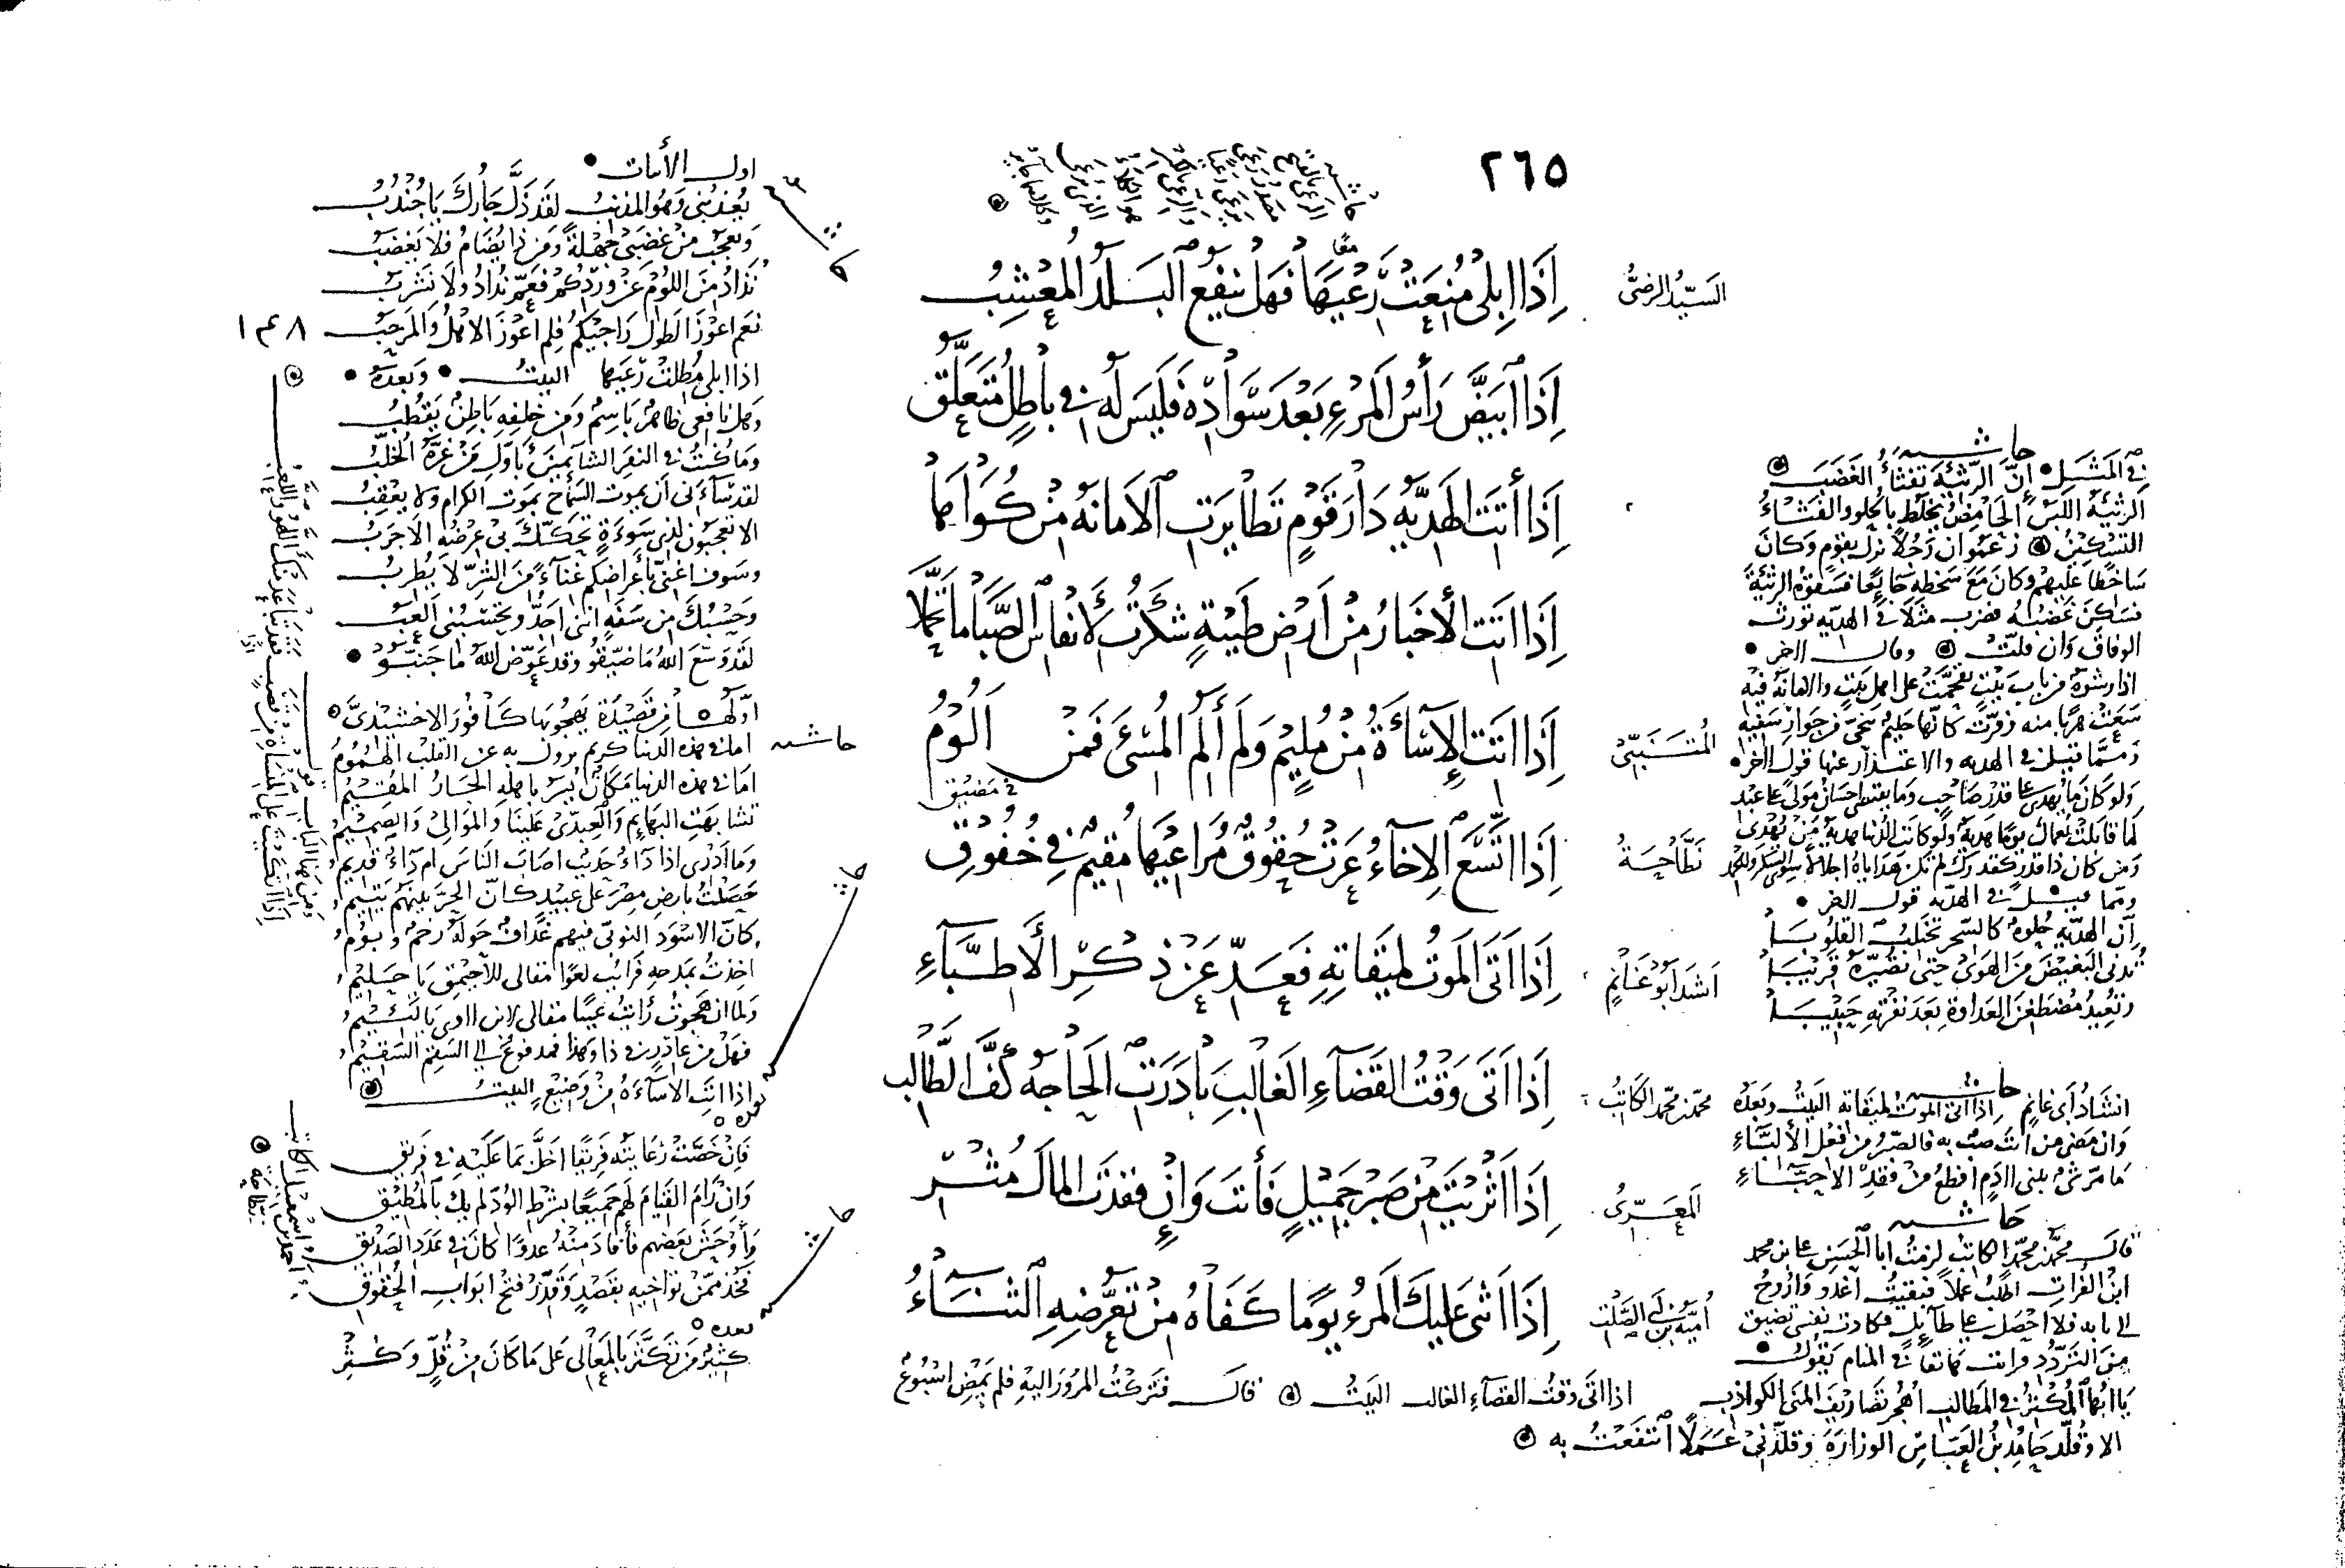 ٢٦٥
السيد الرضى
إذا إبلى منعت رعيها فهل ينفع البلد المعشب
إذا ابيض رأس المرء بعد سواده فليس له فى باطل متعلق
إذا أتت الهدية دار قوم تطايرت الأمانة من كواها
إذا أتت الأخبار من أرض طيبة شكرت لأنفاس الصبا ما تحملا
المتنبى
إذا أتت الإساءة من مليم ولم ألم المسئ فمن ألوم
نطاحة
إذا اتسع الإخاء عرت حقوق مراعيها مقيم فى خفوق
فى مضيق
انشد أبو غانم
إذا أتى الموت لميقاته فعد عن ذكر الأطباء
محمد بن محمد الكاتب
إذا أتى وقت القضاء الغالب بادرت الحاجة كف الطالب
المعرى
إذا أثريت من صبر جميل فأنت وإن فقدت المال مثر
أمية بن أبى الصلت
إذا أثنى عليك المرء يوما كفاه من تعرضه الثناء
حاشية
فى المثل إن الرثيئة تفثأ الغضب
الرثيئة اللبن الحامض يخلط بالحلو والفثاء
التسكين زعموا ان رجلا نزل بقوم وكان
ساخطا عليهم وكان مع سخطه جائعا فسقوه الرثيئة
فسكن غضبه فضرب مثلا فى الهدية تورث
الوفاق وان قلت وقال اخر
اذا رشوة من باب بيت تقحمت على اهل بيت والامانة فيه
سعت هربا منه وفرت كأنها حليم تنحى عن جوار سفيه
ومما قيل فى الهدية والاعتذار عنها قول اخر
ومما قيل فى الهدية قول اخر
ان الهدية حلوة كالسحر تختلب القلوبا
تدنى البغيض من الهوى حتى تصيره قريبا
وتعيد مضطغن العداوة بعد نفرته حبيبا
حاشية
انشاد أبى غانم إذا أتى الموت لميقاته البيت وبعده
وان مضى من انت صب به فالصبر من فعل الألباء
ما مر شئ ببنى ادم افظع من فقد الاحباء
حاشية
قال محمد بن محمد الكاتب لزمت ابا الحسن على بن محمد
ابن الفرات اطلب عملا فبقيت أغدو واروح
الى بابه فلا احصل على طائل فكادت نفسى تضيق
من التردد فرأيت هاتفا فى المنام يقول
يا ايها المكثر فى المطالب اهجر تصاريف المنى الكواذب
اذا اتى وقت القضاء الغالب البيت قال فتركت المرور اليه فلم يمض اسبوع
الا وقلد حامد بن العباس الوزارة وقلدنى عملا انتفعت به
حاشية
اول الأبيات
يعذبنى وهو المذنب لقد ذل جارك يا جندب
وتعجب من غضبى جهلة ومن ذا يضام فلا يغضب
نذاد من اللوم عن وردكم فعم نذاد ولا نشرب
نعم اعوز الطول راجيكم فلم اعوز الاهل والمرحب
اذا ابلى مطلت رعيها البيت وبعده
وهل نافعى ظاهر باسم ومن خلفه باطن يقطب
وما كنت فى النفر الشائمين بأول من غره الخلب
لقد ساءنى أن يموت السماح بموت الكرام ولا يعقب
الا تعجبون لذى سوءة تحكك بى عرضه الاجرب
وسوف اغنى بأعراضكم غناء من الشر لا يطرب
وحسبك من سفه اننى اجد وتحسبنى ألعب
لقد وسع الله ما ضيقوا وقد عوض الله ما جنبوا
١٢٤٨
حاشية
أولها من قصيدة يهجو بها كافور الاخشيدى
اما فى هذه الدنيا كريم تزول به عن القلب الهموم
اما فى هذه الدنيا مكان يسر باهله الجار المقيم
تشابهت البهائم والعبدى علينا والموالى والصميم
وما ادرى اذا داء حديث اصاب الناس ام داء قديم
حصلت بارض مصر على عبيد كأن الحر بينهم يتيم
كأن الاسود النوبى فيهم غداف حوله رخم وبوم
اخذت بمدحه فرأيت لغوا مقالى للأحيمق يا حليم
ولما ان هجوت رأيت عيبا مقالى لابن اوى يا لئيم
فهل من عاذر فى ذا وهذا فمدفوع الى السقم السقيم
اذا اتت الاساءة من وضيع البيت
حاشية
بعده
فان خصت رعايته فريقا اخل بما عليه فى فريق
وان رام القيام لهم جميعا بشرط الود لم يك بالمطيق
وأوحش بعضهم فأفاد منه عدوا كان فى عدد الصديق
فخذ ممن تواخيه بقصد وقدر فتح ابواب الحقوق
احمد بن اسمعيل الكاتب نطاحة
حاشية
بعده
كثير من تكثر بالمعالى على ما كان من قل وكثر